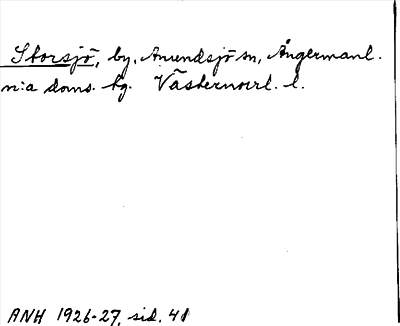 Storsjö, by, Anundsjö sn, Ångermanl.
n:a doms. hg. Västernorrl. l.
ANH 1926-27, sid. 41